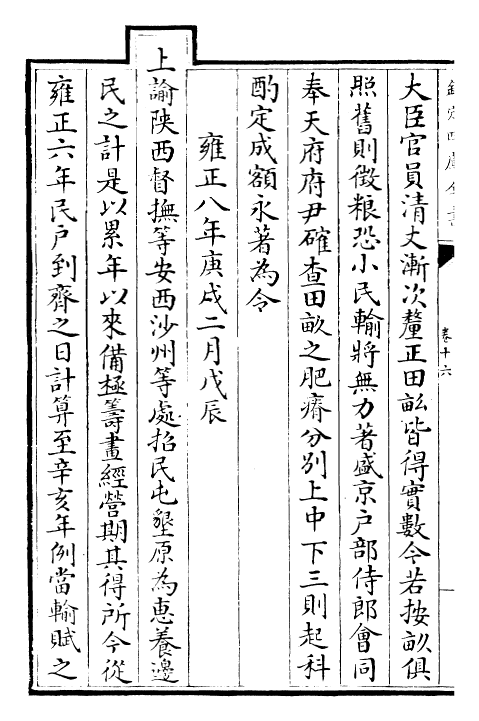 欽定四庫全書
卷十六
大臣官員清丈漸次釐正田畆皆得實數今若按畝俱
照舊則徴粮恐小民輸將無力著盛京户部侍郎會同
奉天府府尹確查田畝之肥瘠分别上中下三則起科
酌定成額永著為令
雍正八年庚戌二月戊辰
上諭陜西督撫等安西沙州等處招民屯墾原為惠養邊
民之計是以累年以來備極籌畫經營期其得所今從
雍正六年民户到齊之日計算至辛亥年例當輸賦之